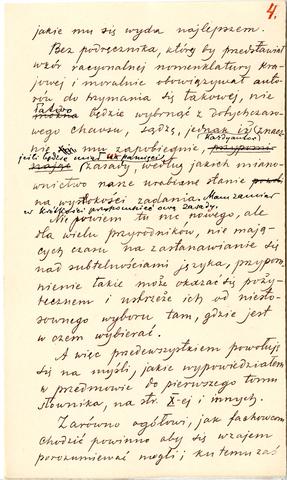 4.
jakie mu się wyda najlepszem.
Bez podręcznika, któryby przedstawiał
wzór racyonalnej nomenklatury kra-
jowej i moralnie obowiązywał auto-
rów do trzymania się takowej, nie
łatwo
można będzie wybrnąć z dotychczaso-
wego chaosu, sądzę, jednak iż znacz-
Każdy autor
nie mu zapobiegnie, przypomni
jeśli będzie miał na pamięci
zasady, według jakich miano-
wnictwo nasze urabiane stanie
na wysokości zadania. Mam zamiar
w krótkości przypomnieć te zasady.
Nie powiem tu nic nowego, ale
dla wielu przyrodników, nie mają-
cych czasu na zastanawianie się
nad subtelnościami języka, przypom-
nienie takie może okazać się poży-
tecznem i ustrzeże ich od niesto-
sownego wyboru tam, gdzie jest
w czem wybierać.
A więc przedewszystkiem powołuję
się na myśli, jakie wypowiedziałem
w przedmowie do pierwszego tomu
słownika, na str. X-ej i innych.
Zarówno ogółowi, jak fachowcom
chodzić powinno aby się wzajem
porozumiewać mogli; ku temu zaś